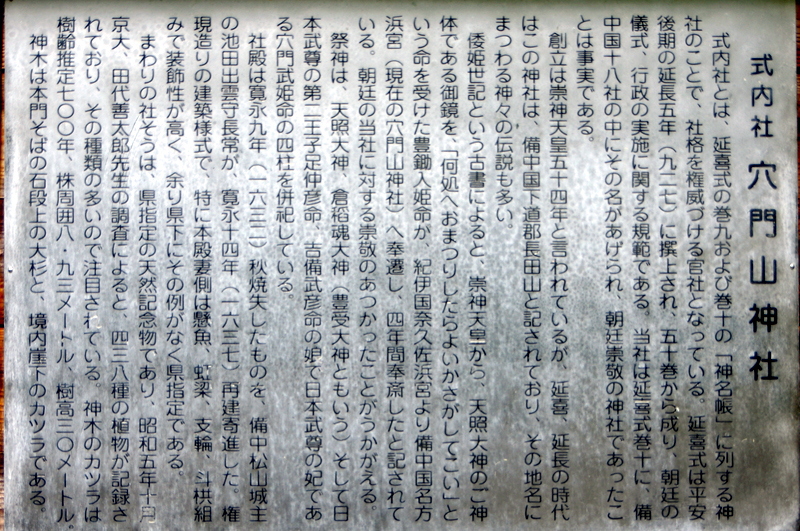 式内社 穴門山神社
式内社とは、延喜式の巻九および巻十の「神名帳」に列する神
社のことで、社格を権威づける官社となっている。延喜式は平安
後期の延長五年（九二七）に撰上され、五十巻から成り、朝廷の
儀式、行政の実施に関する規範である。当社は延喜式巻十に、備
中国十八社の中にその名があげられ、朝廷崇敬の神社であったこ
とは事実である。
創立は崇神天皇五十四年と言われているが、延喜、延長の時代
はこの神社は、備中国下道郡長田山と記されており、その地名に
まつわる神々の伝説も多い。
倭姫世記という古書によると、崇神天皇から、天照大神のご神
体である御鏡を、「何処へおまつりしたらよいかさがしてこい」と
いう命を受けた豊鋤入姫命が、紀伊国奈久佐浜宮より備中国名方
浜宮（現在の穴門山神社）へ奉遷し、四年間奉斎したと記されて
いる。朝廷の当社に対する崇敬のあつかったことがうかがえる。
祭神は、天照大神、倉稻魂大神（豊受大神ともいう）そして日
本武尊の第二王子足仲彦命、吉備武彦命の娘で日本武尊の妃であ
る穴門武姫命の四柱を併祀している。
社殿は寛永九年（一六三二）秋焼失したものを、備中松山城主
の池田出雲守長常が、寛永十四年（一六三七）再建寄進した。権
現造りの建築様式で、特に本殿妻側は懸魚、虹梁、支輪、斗栱組
みで装飾性が高く、余り県下にその例がなく県指定である。
まわりの社そうは、県指定の天然記念物であり、昭和五年十月
京大、田代善太郎先生の調査によると、四三八種の植物が記録さ
れており、その種類の多いので注目されている。神木のカツラは
樹齢推定七〇〇年、株周囲八・九三メートル、樹高三〇メートル。
神木は本門そばの石段上の大杉と、境内崖下のカツラである。